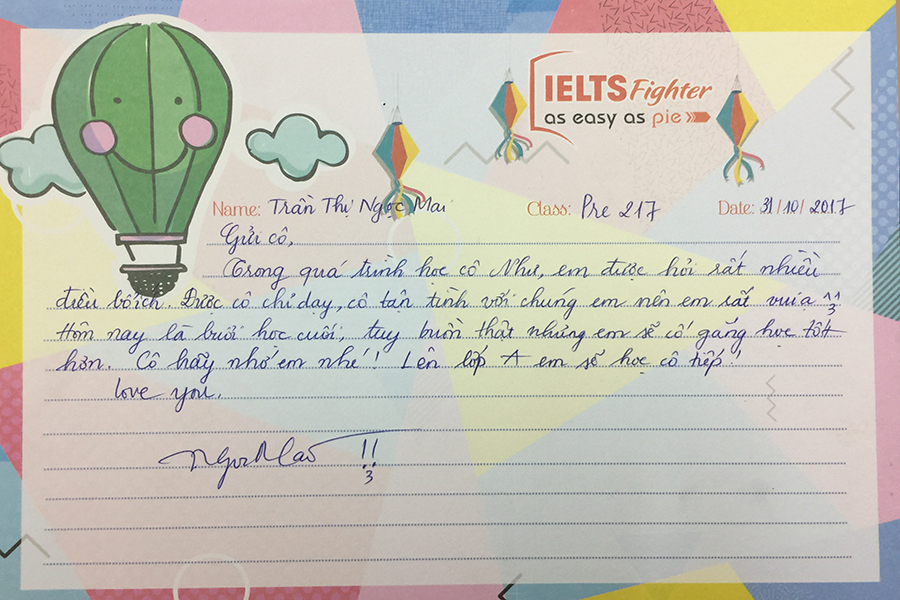 IELTS Fighter
as easy as pie
Name: Trần Thị Ngọc Mai
Class: Pre 217
Date: 31/10/2017
Gửi cô,
Trong quá trình học cô Như, em được hỏi rất nhiều
điều bổ ích. Được cô chỉ dạy, cô tận tình với chúng em nên em rất vui ạ ^^
Hôm nay là buổi học cuối, tuy buồn thật nhưng em sẽ cố gắng học tốt
hơn. Cô hãy nhớ em nhé! Lên lớp A em sẽ học cô tiếp!
love you.
Ngọc Mai !!